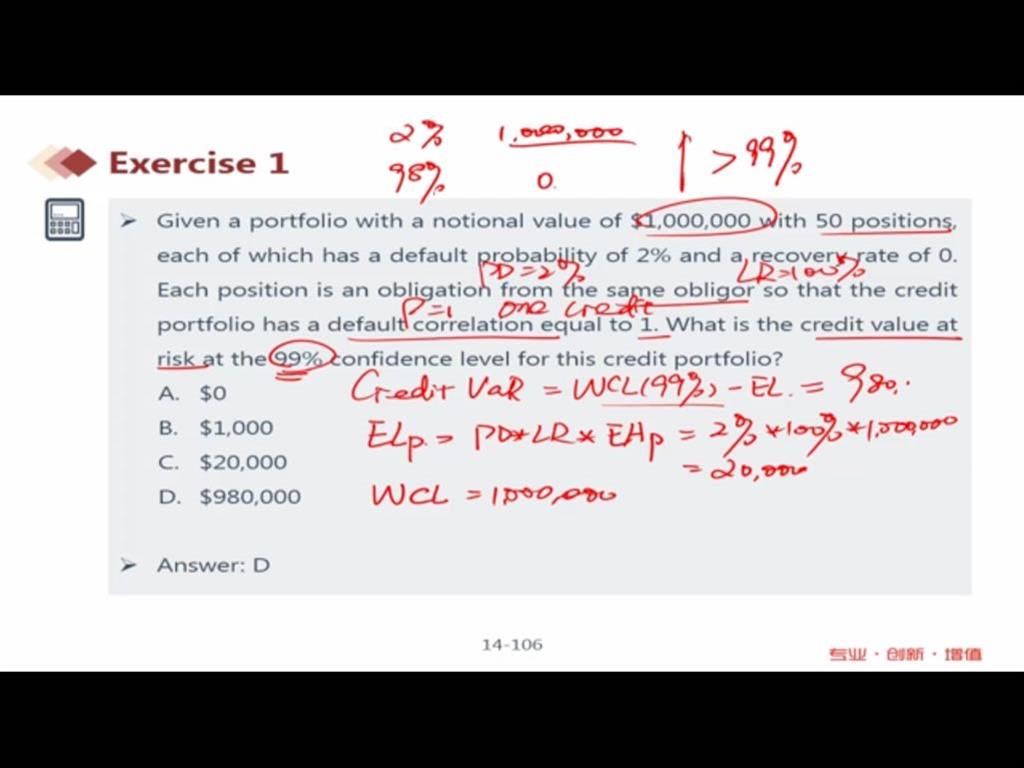 2% 1,000,000
> 99%
98% 0.
Exercise 1
Given a portfolio with a notional value of $1,000,000 with 50 positions,
each of which has a default probability of 2% and a recovery rate of 0.
PD=2% LR=100%
Each position is an obligation from the same obligor so that the credit
P=1 one credit
portfolio has a default correlation equal to 1. What is the credit value at
risk at the 99% confidence level for this credit portfolio?
A. $0
Credit VaR = WCL(99%) - EL. = 980.
B. $1,000
ELp. = PD*LR* EAp = 2%*100%*1,000,000
C. $20,000
= 20,000
D. $980,000
WCL = 1,000,000
Answer: D
14-106
专业·创新·增值